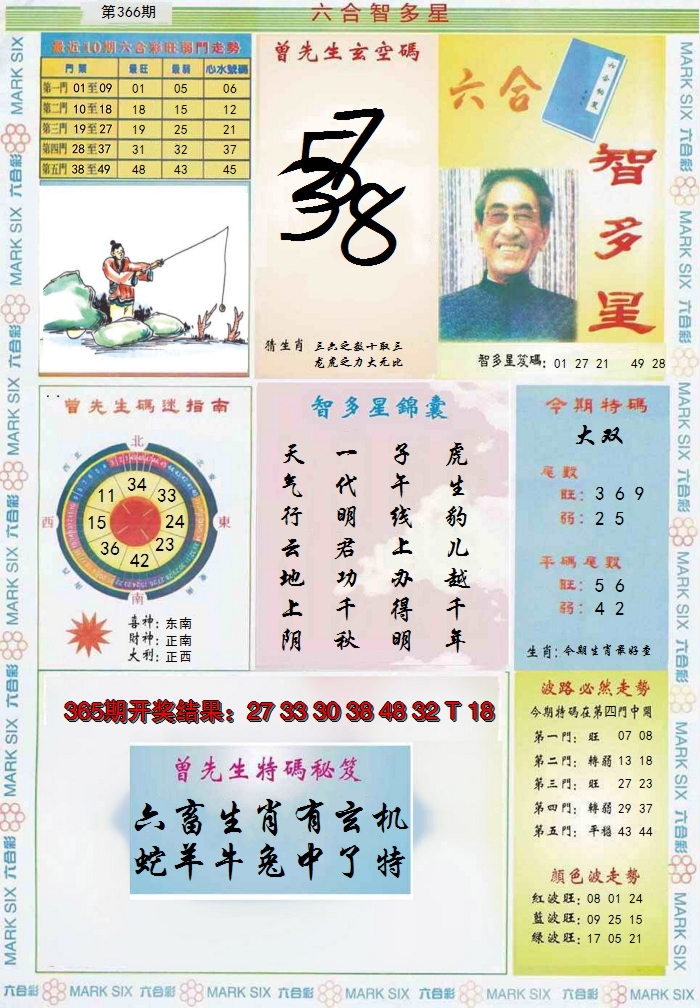 第366期
六合智多星
最近10期六合彩旺弱門走勢
門票 最旺 最弱 心水號碼
第一門 01至09 01 05 06
第二門 10至18 18 15 12
第三門 19至27 19 25 21
第四門 28至37 31 32 37
第五門 38至49 48 43 45
曾先生玄空碼
57
38
猜生肖 三六之数十取三
龙虎之力大无比
六合
智多星
智多星笈碼: 01 27 21 49 28
曾先生碼迷指南
北
西
東
南
34
33
24
23
42
36
15
11
喜神: 东南
财神: 正南
大利: 正西
智多星錦囊
虎生豹儿越千年
子午线上办得明
一代明君功千秋
天气行云地上阴
今期特碼
大双
尾數
旺: 3 6 9
弱: 2 5
平碼尾數
旺: 5 6
弱: 4 2
生肖: 今期生肖最好查
365期开奖结果: 27 33 30 38 48 32 T 18
曾先生特碼秘笈
六畜生肖有玄机
蛇羊牛兔中了特
波路必然走勢
今期特碼在第四門中開
第一門: 旺 07 08
第二門: 轉弱 13 18
第三門: 旺 27 23
第四門: 轉弱 29 37
第五門: 平穩 43 44
顏色波走勢
紅波旺: 08 01 24
藍波旺: 09 25 15
绿波旺: 17 05 21
MARK SIX 六合彩 MARK SIX 六合彩 MARK SIX 六合彩 MARK SIX 六合彩 MARK SIX